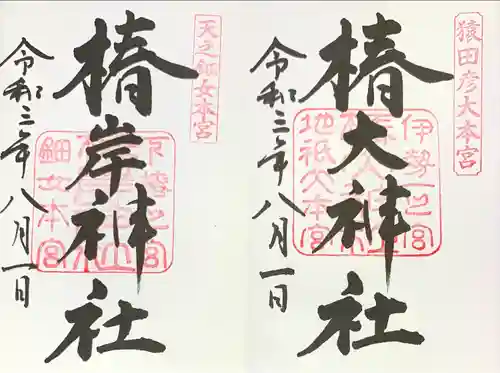 猿田彦大本宮
伊勢一之宮
地祇大本宮
椿大神社
令和三年八月一日
天之鈿女本宮
鈿女本宮
椿岸神社
令和三年八月一日